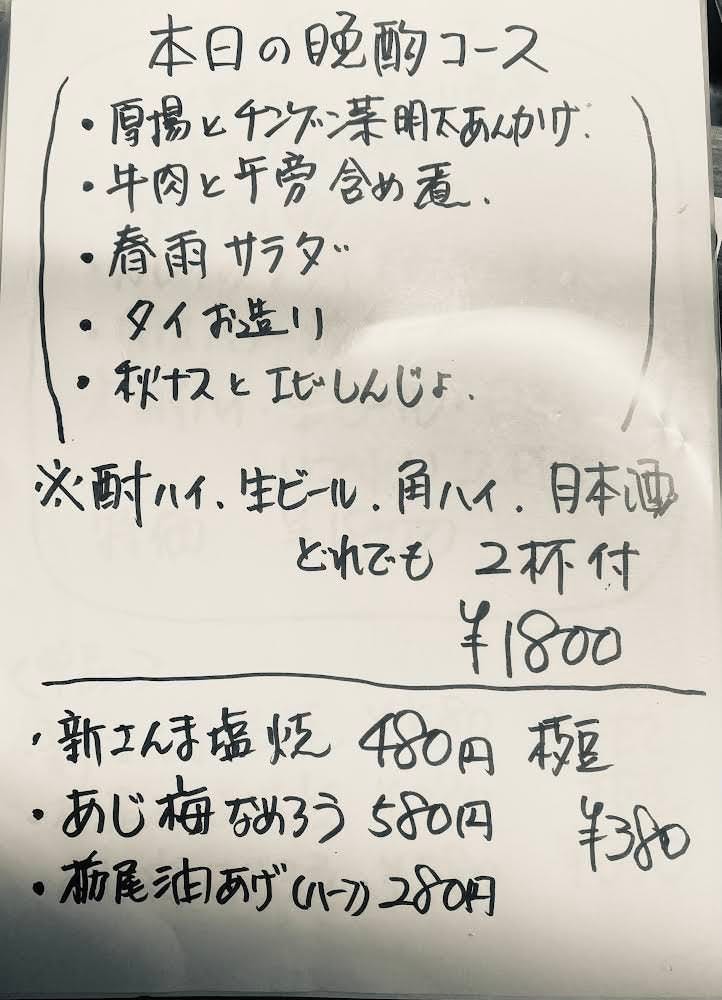 本日の晩酌コース
・厚揚とチンゲン菜明太あんかけ.
・牛肉と牛旁含め煮.
・春雨サラダ
・タイお造り
・秋ナスとエビしんじょ.
※酎ハイ.生ビール.角ハイ.日本酒
どれでも 2杯付
¥1800
・新さんま塩焼 480円 枝豆
・あじ梅なめろう 580円 ¥380
・栃尾油あげ(ハーフ) 280円